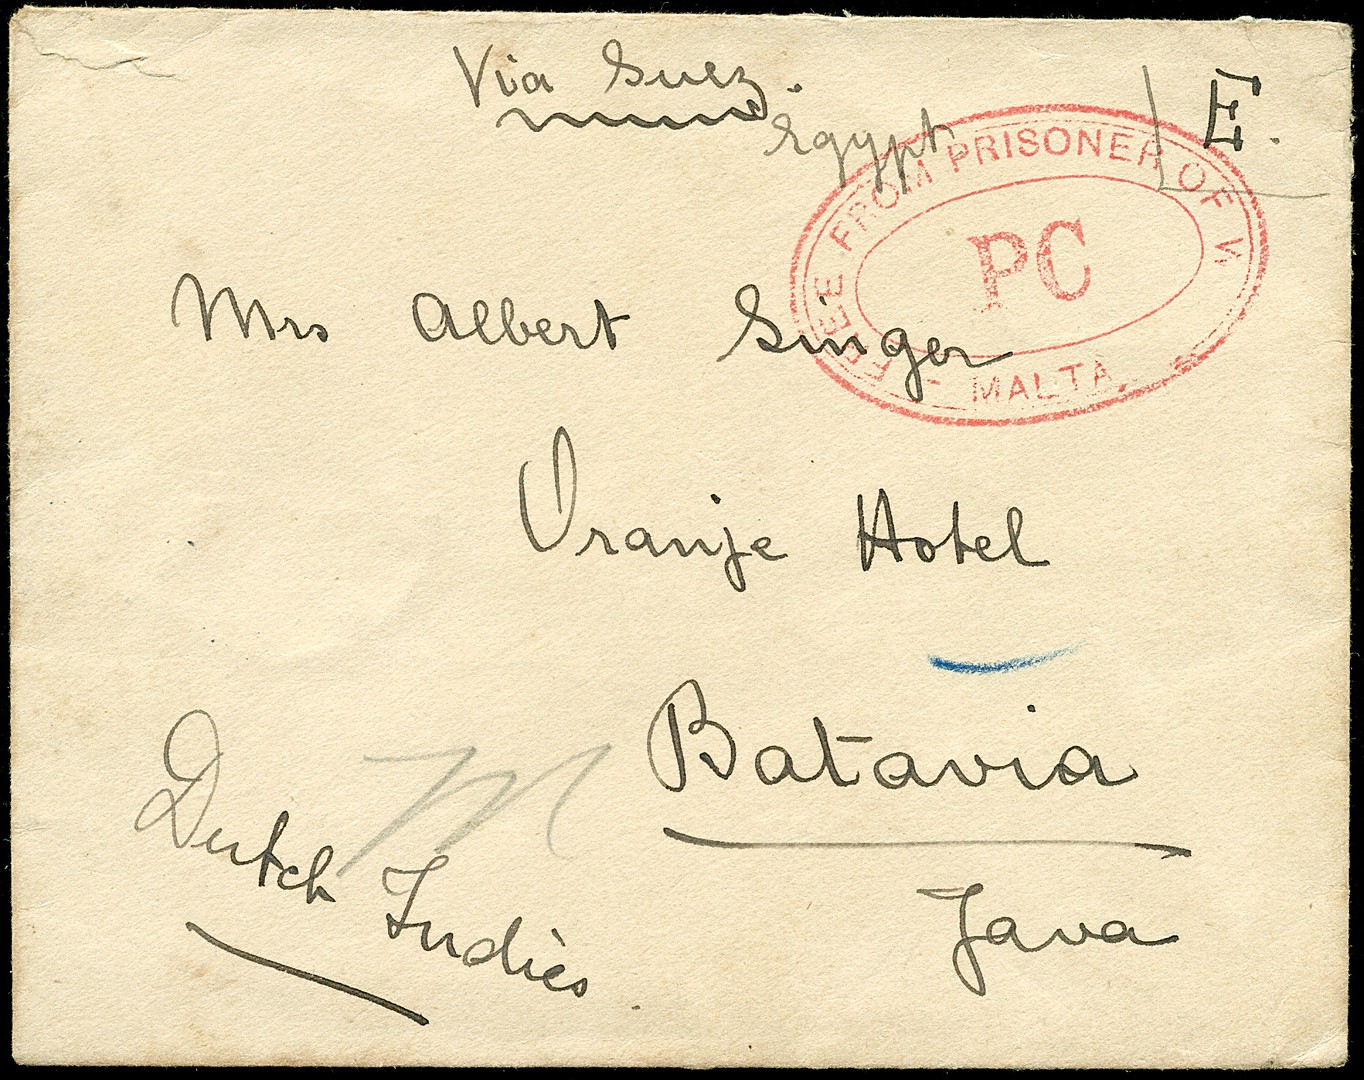 Via Suez.
Egypt
E.
FREE FROM PRISONER OF W.
PC
MALTA.
Mrs Albert Singer
Oranje Hotel
Batavia
Java
M
Dutch Indies.